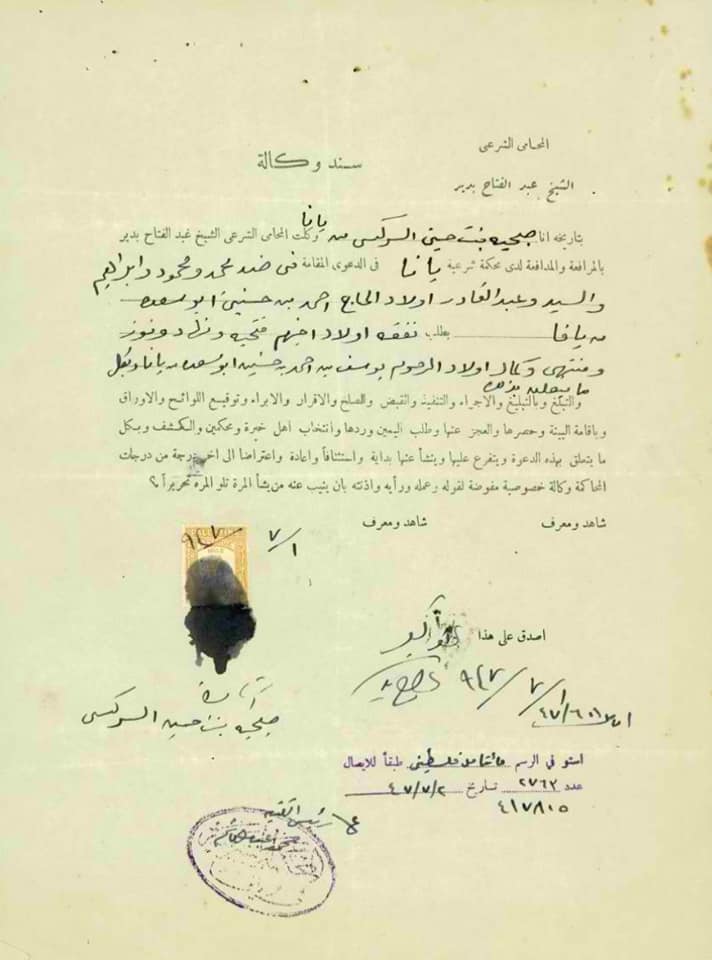 المحامي الشرعي
سند وكالة
الشيخ عبد الفتاح بدير
بتاريخه انا صبحيه بنت حسين السركسي من يافا وكلت المحامي الشرعي الشيخ عبد الفتاح بدير
بالمرافعة والمدافعة لدى محكمة شرعية يافا في الدعوى المقامة مني ضد محمد ومحمود وابراهيم
والسيد وعبد القادر اولاد الحاج احمد بن حسنين ابو سعده
من يافا بطلب نفقه اولاد اخيهم فتحيه و
ومنتهى وكمال اولاد المرحوم يوسف بن احمد بن حسنين ابو سعده من يافا وبكل
ما يتعلق بذلك
والتبلغ وبالتبليغ والاجراء والتنفيذ والقبض والصلح والاقرار والابراء وتوقيع اللوائح والاوراق
وباقامة البينة وحصرها والعجز عنها وطلب اليمين وردها وانتخاب اهل خبرة ومحكمين والكشف وبكل
ما يتعلق بهذه الدعوة ويتفرع عليها وينشأ عنها بداية واستئنافاً واعادة واعتراضا الى اخر درجة من درجات
المحاكمة وكالة خصوصية مفوضة لقوله وعمله ورأيه واذنته بان ينيب عنه من يشأ المرة تلو المرة تحريراً ؟
شاهد ومعرف شاهد ومعرف
٧/١ ٩٤٧
اصدق على هذا
٩٤٧/٧/١
صبحيه بنت حسين السركسي
استو في الرسم فلسطيني طبقاً للايصال
عدد ٢٧٦٣ تاريخ ٤٧/٧/٢
٤١٧٨٠٥
رئيس الكتبه